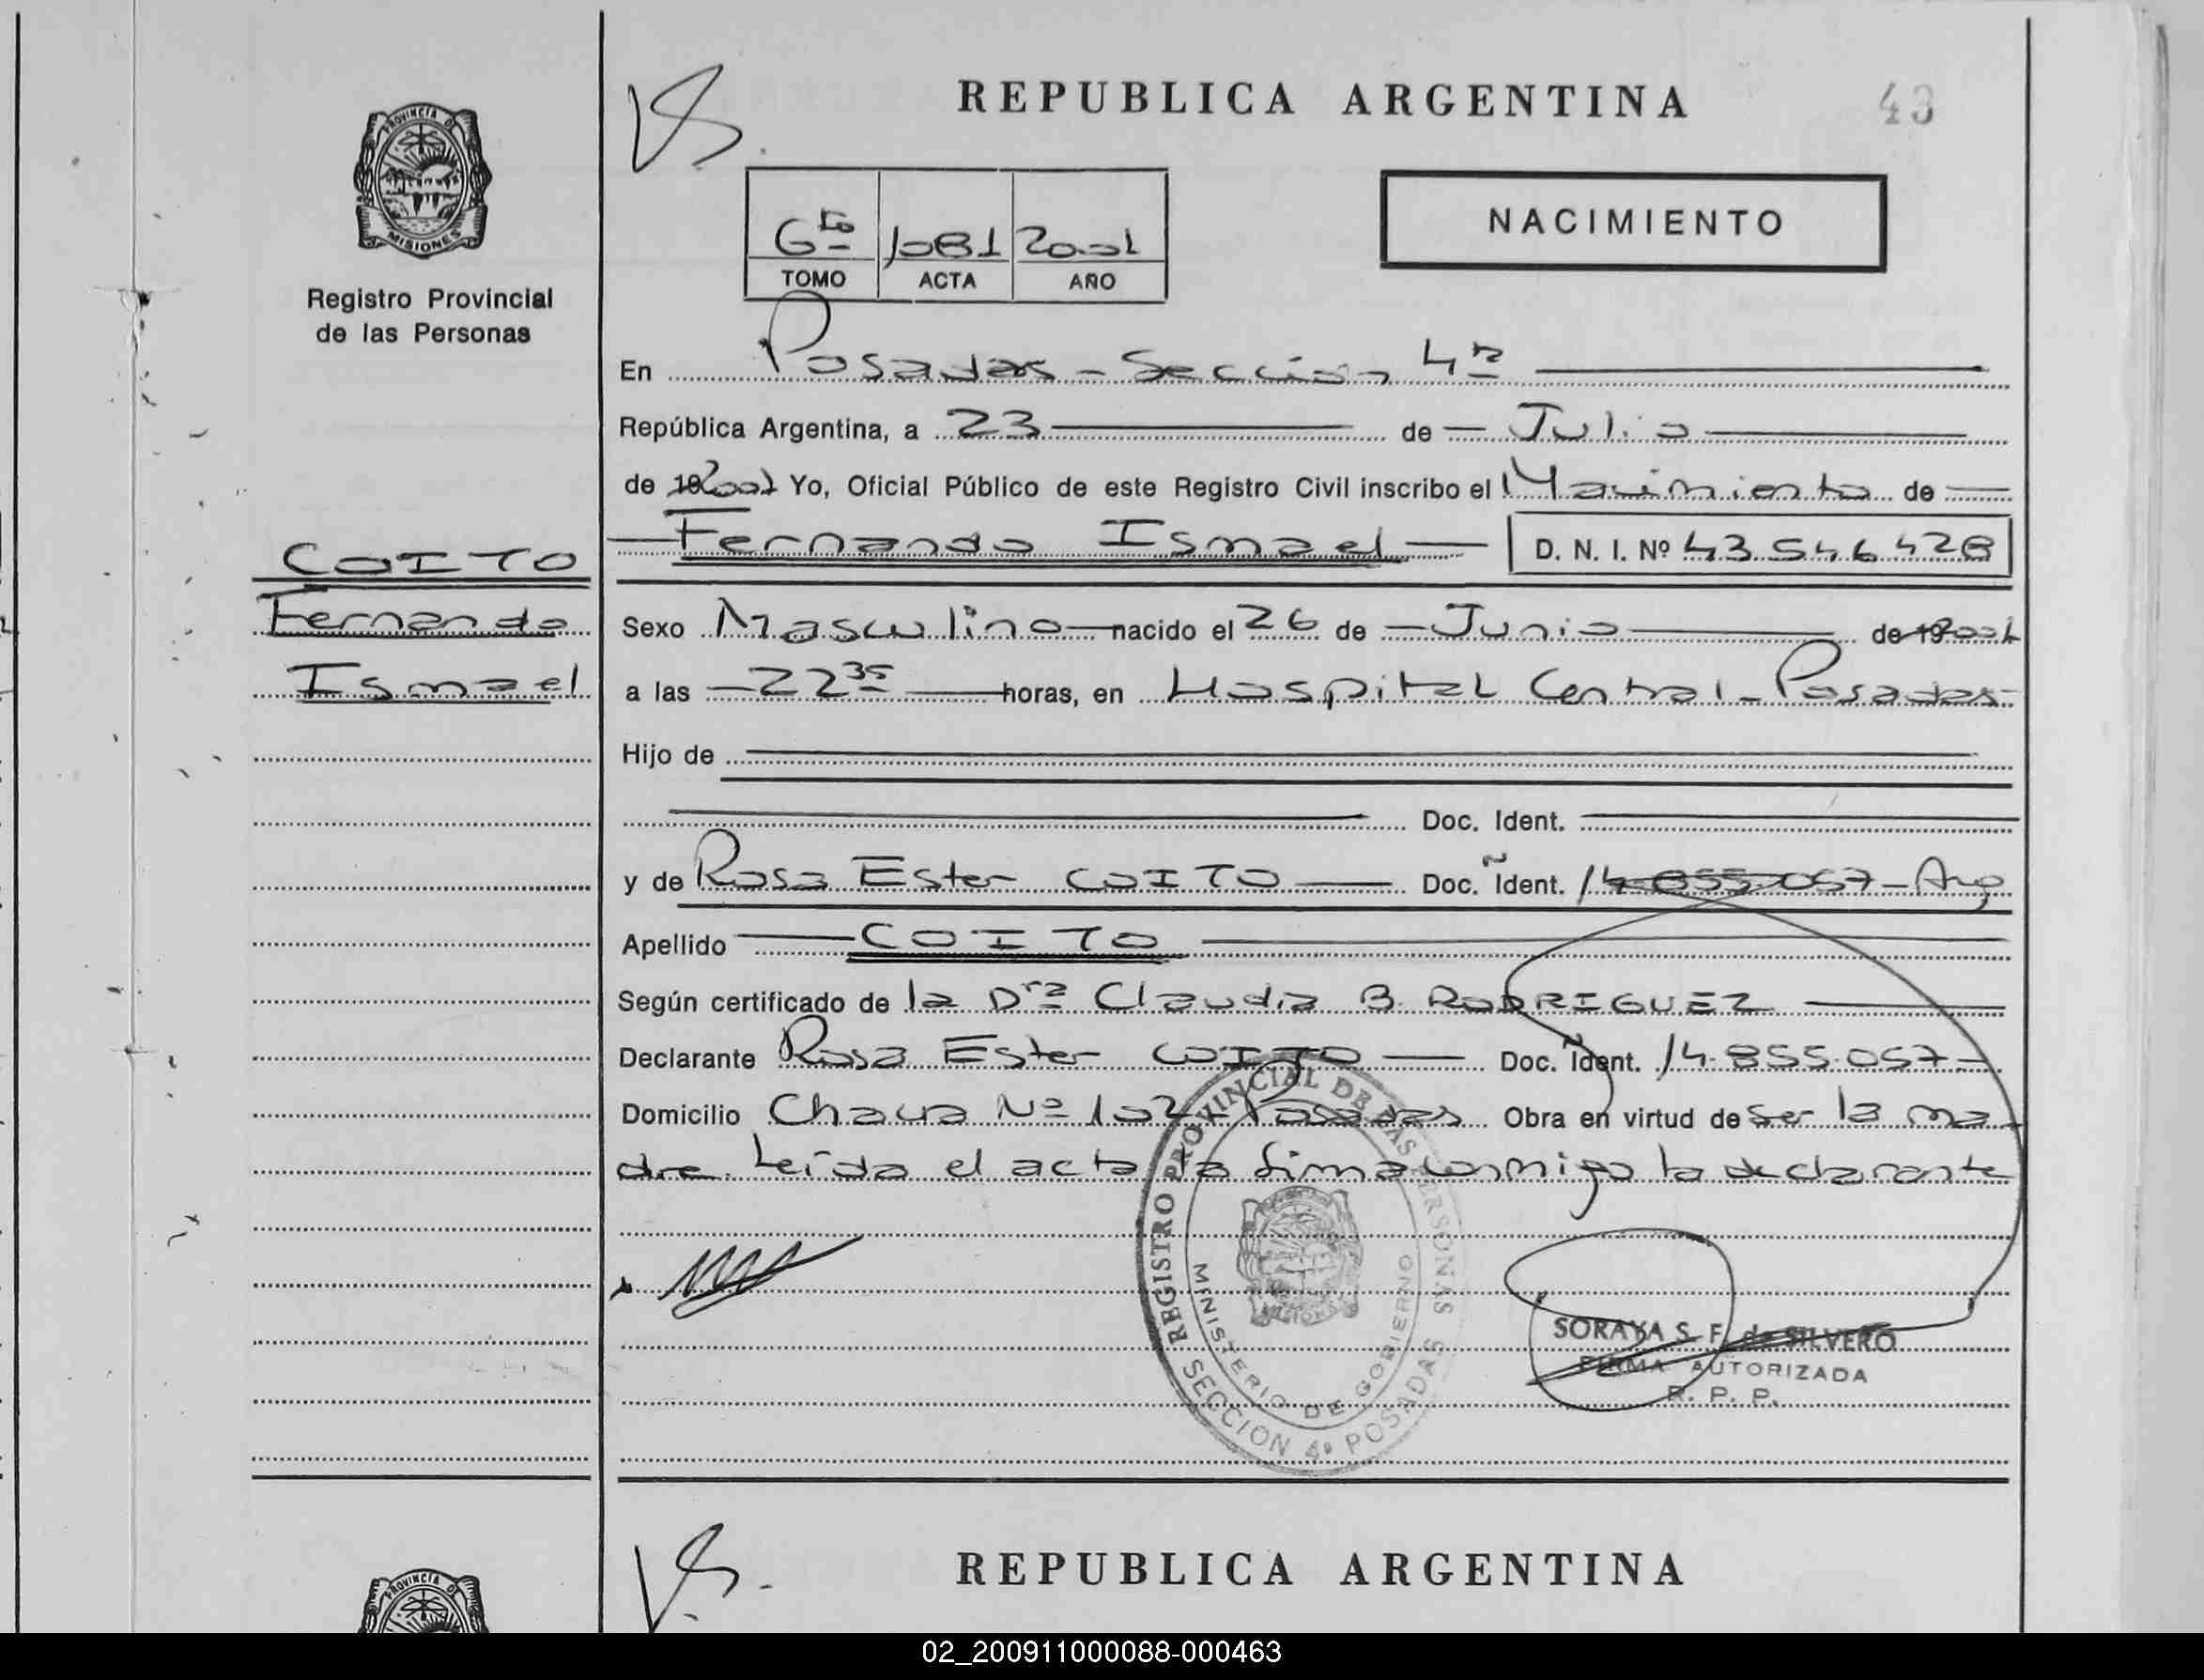 REPUBLICA ARGENTINA
43
PROVINCIA DE
MISIONES
Registro Provincial
de las Personas
6to 1081 2001
TOMO ACTA AÑO
NACIMIENTO
En Posadas - Sección 4ª
República Argentina, a 23 de Julio
de 19 2001 Yo, Oficial Público de este Registro Civil inscribo el Nacimiento de
Fernando Ismael D. N. I. Nº 43.546.428
COITO
Fernando
Ismael
Sexo Masculino nacido el 26 de Junio de 19 2001
a las 22 35 horas, en Hospital Central - Posadas
Hijo de
Doc. Ident.
y de Rosa Ester COITO Doc. Ident. 14.855.057 - Arg
Apellido COITO
Según certificado de la Dra Claudia B. RODRIGUEZ
Declarante Rosa Ester COITO Doc. Ident. 14.855.057
Domicilio Nº 102 - Posadas Obra en virtud de ser la ma
dre. Leída el acta la firma conmigo la declarante
REGISTRO PROVINCIAL DE LAS PERSONAS
MINISTERIO DE GOBIERNO
SECCION 4ª POSADAS
SORAYA S. F. de SILVERO
FIRMA AUTORIZADA
R. P. P.
PROVINCIA DE
REPUBLICA ARGENTINA
02_200911000088-000463